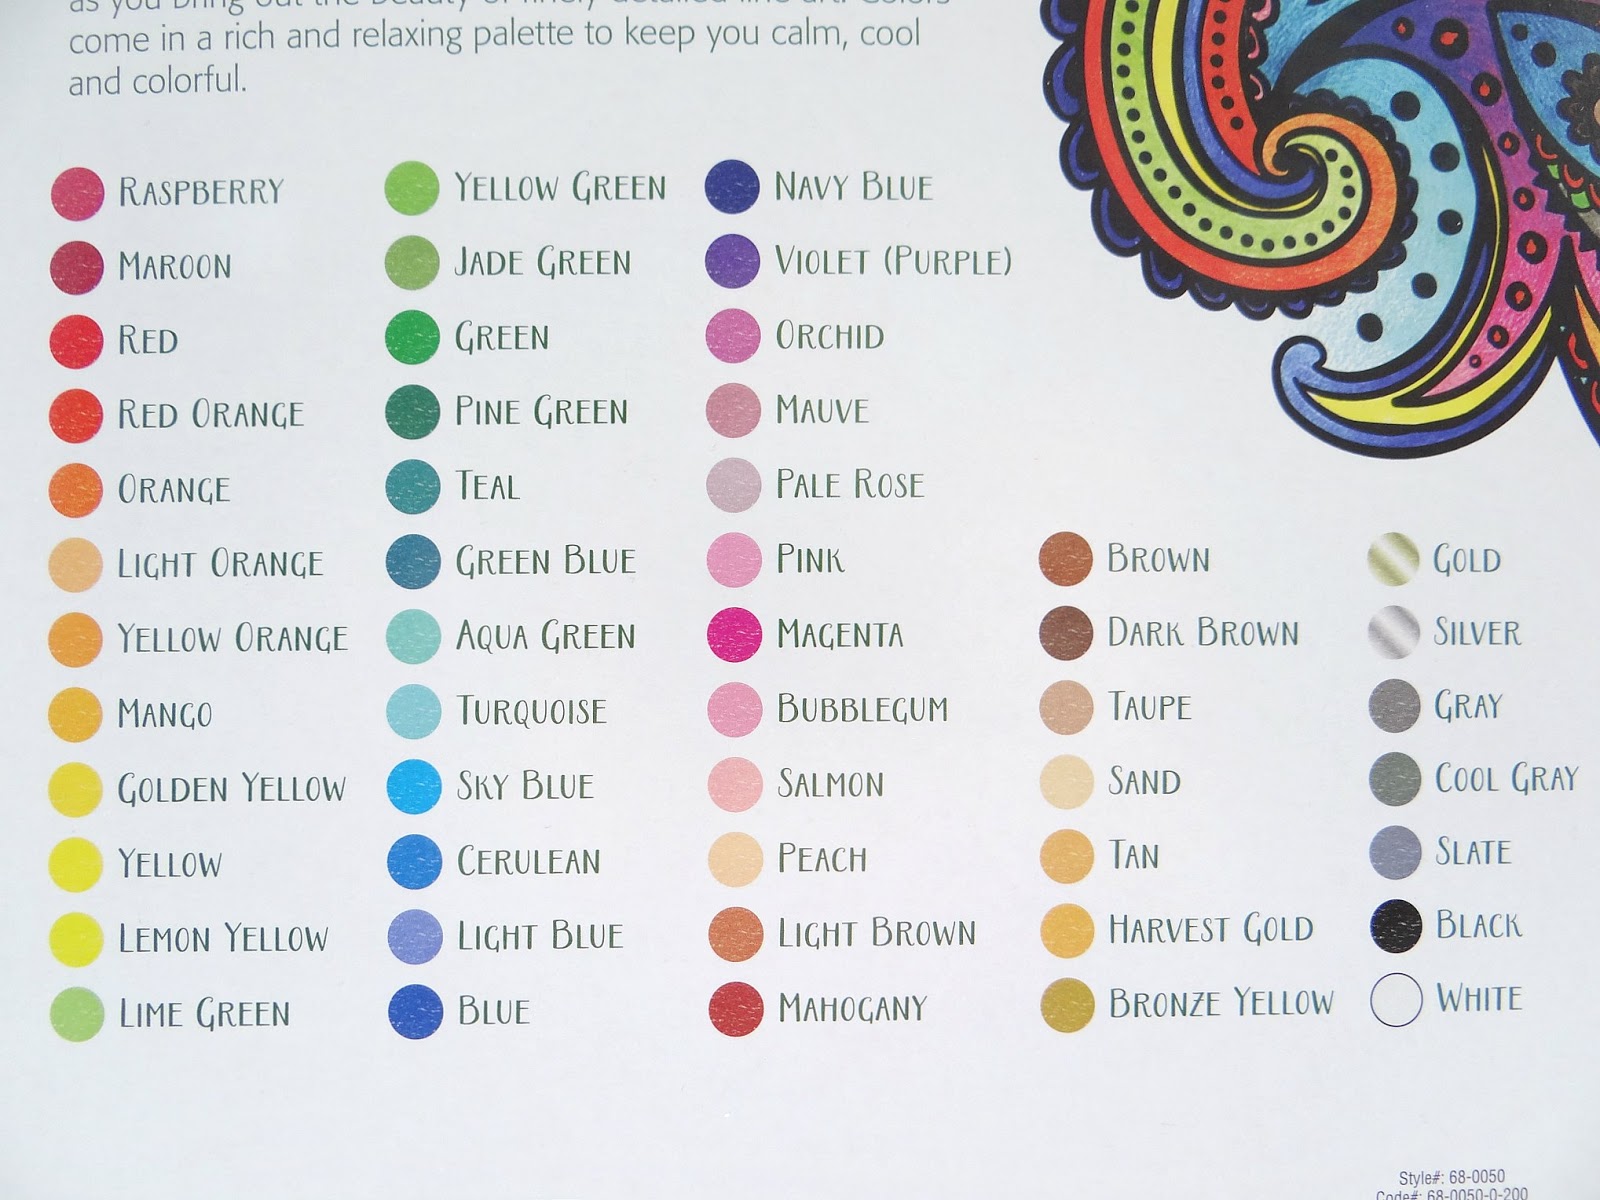 as you bring out the beauty of finely detailed line art. Colors
come in a rich and relaxing palette to keep you calm, cool
and colorful.
RASPBERRY
MAROON
RED
RED ORANGE
ORANGE
LIGHT ORANGE
YELLOW ORANGE
MANGO
GOLDEN YELLOW
YELLOW
LEMON YELLOW
LIME GREEN
YELLOW GREEN
JADE GREEN
GREEN
PINE GREEN
TEAL
GREEN BLUE
AQUA GREEN
TURQUOISE
SKY BLUE
CERULEAN
LIGHT BLUE
BLUE
NAVY BLUE
VIOLET (PURPLE)
ORCHID
MAUVE
PALE ROSE
PINK
MAGENTA
BUBBLEGUM
SALMON
PEACH
LIGHT BROWN
MAHOGANY
BROWN
DARK BROWN
TAUPE
SAND
TAN
HARVEST GOLD
BRONZE YELLOW
GOLD
SILVER
GRAY
COOL GRAY
SLATE
BLACK
WHITE
Style#: 68-0050
Code#: 68-0050-0-200